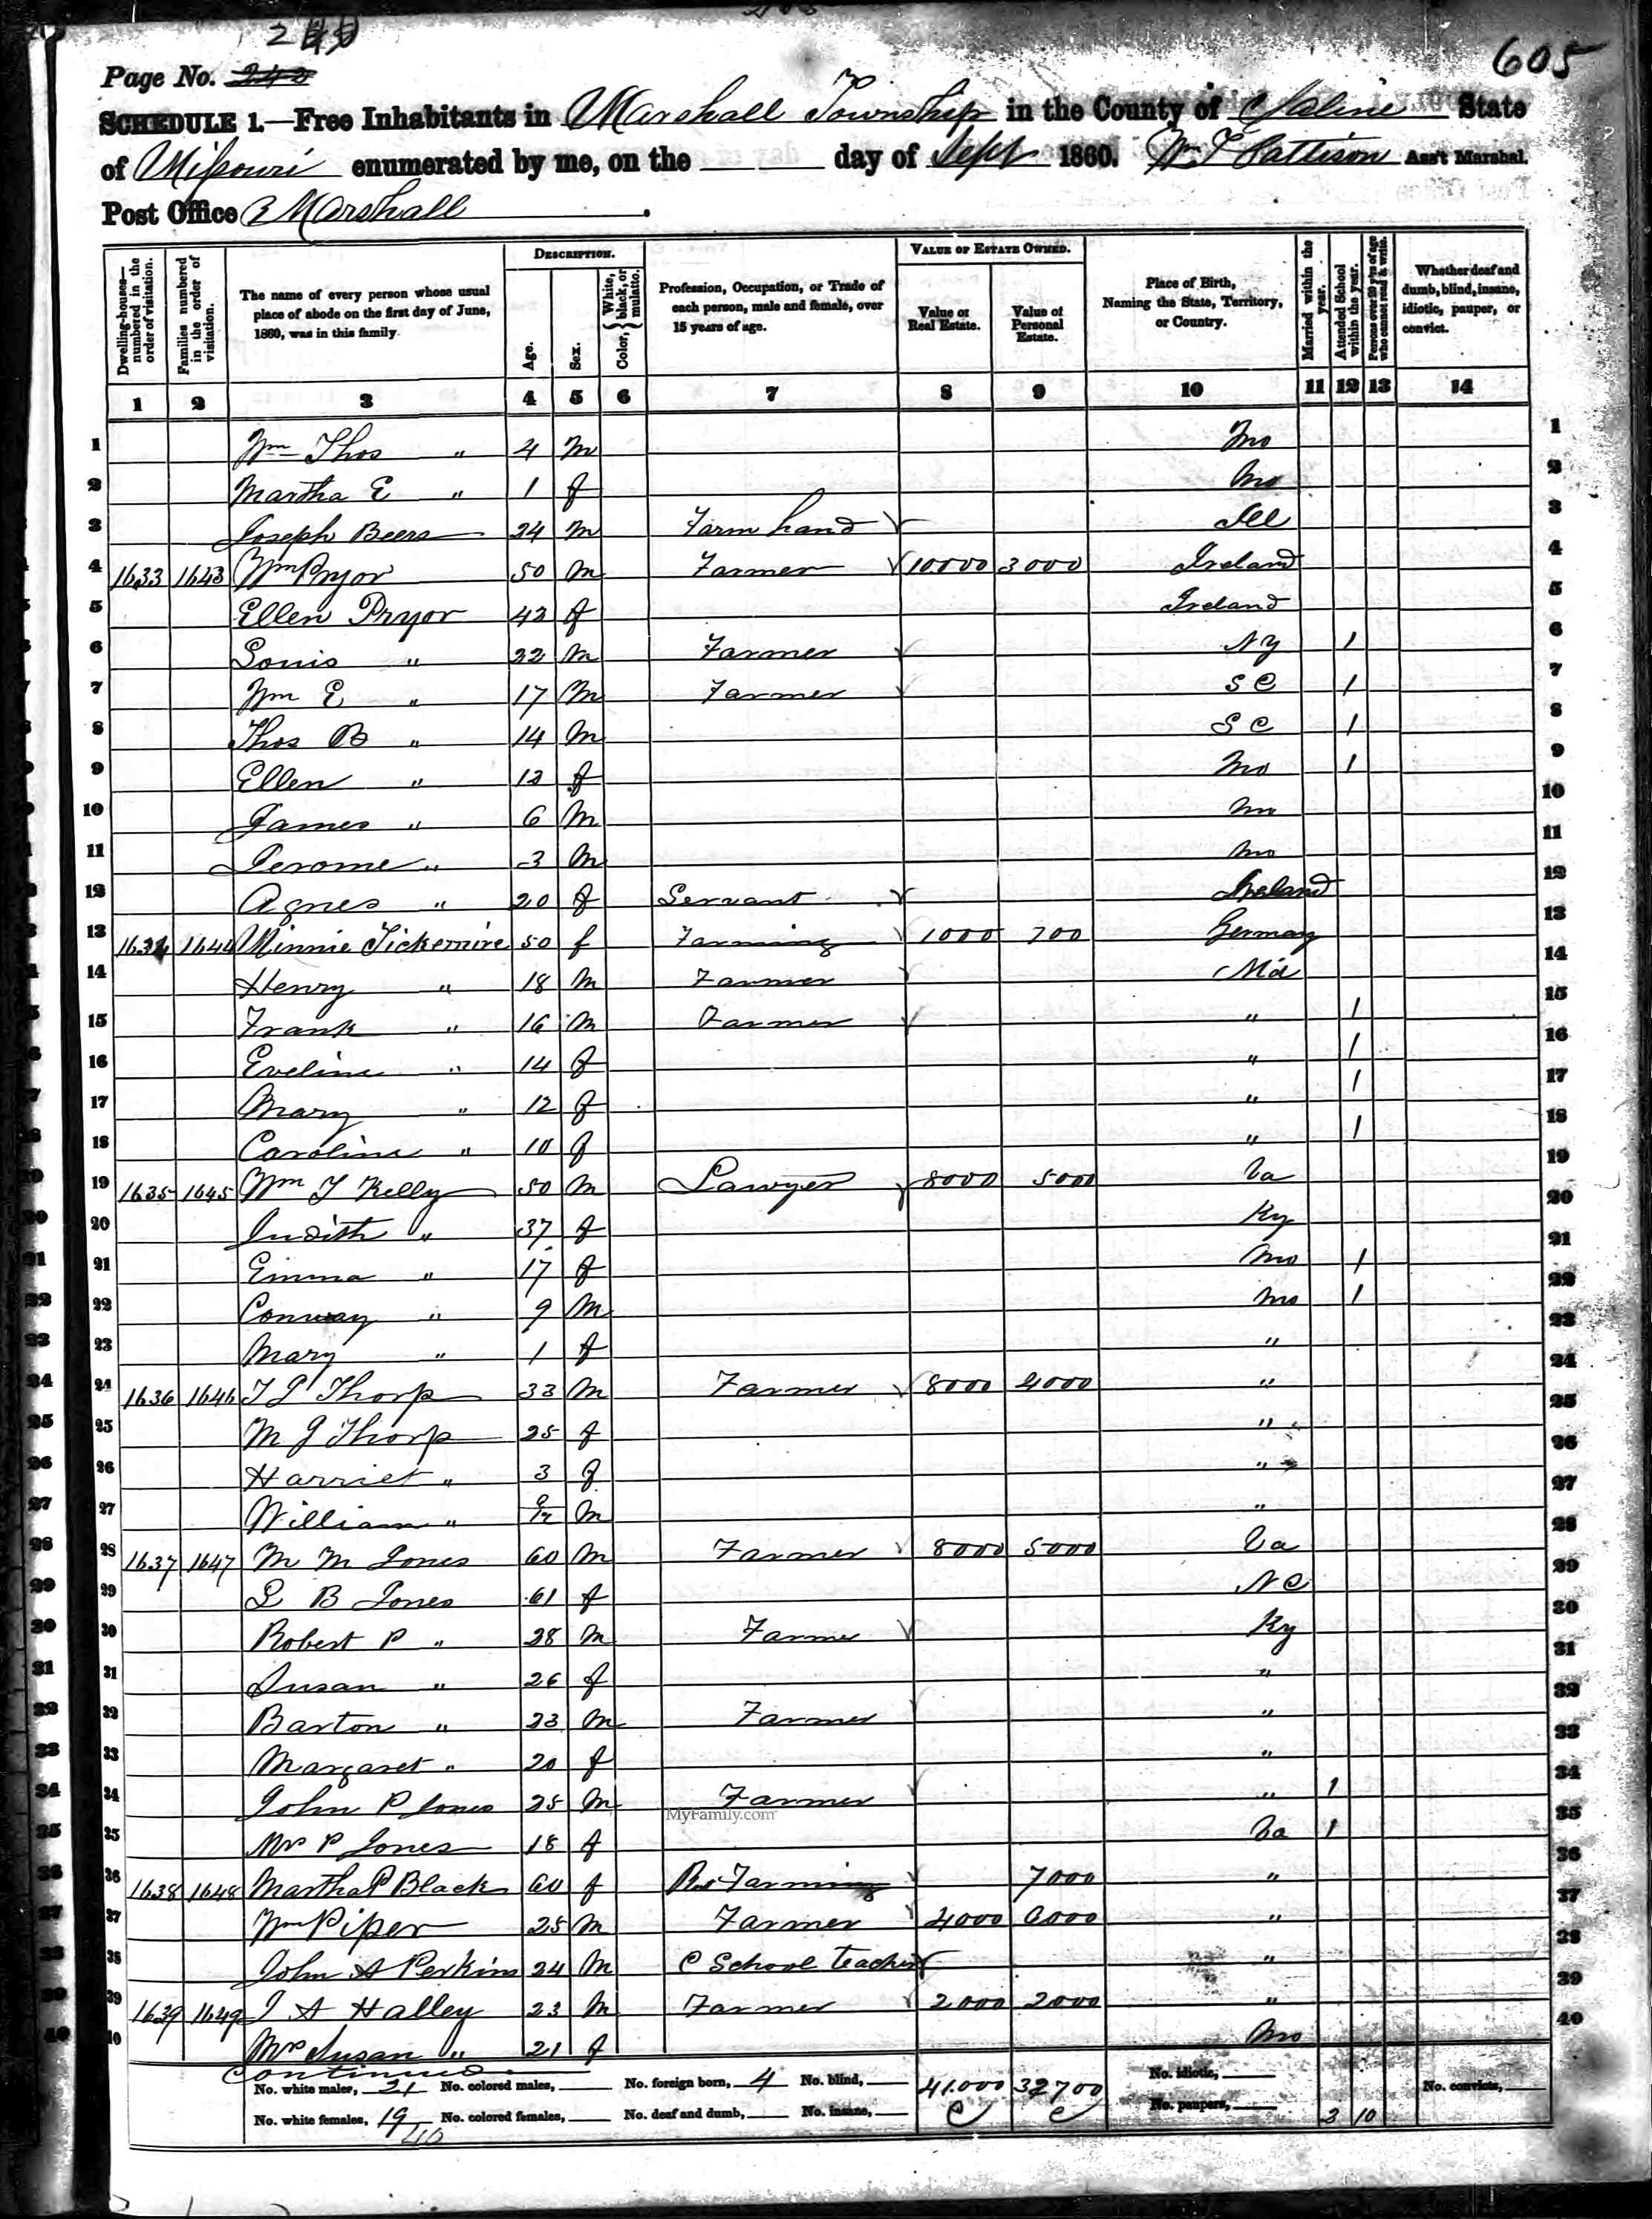 605
Page No.
SCHEDULE 1.—Free Inhabitants in Marshall Township in the County of Saline State
of Missouri enumerated by me, on the ___ day of Sept 1860. Wm T Pattison Ass't Marshal.
Post Office Marshall
Dwelling-houses—numbered in the order of visitation.
Families numbered in the order of visitation.
The name of every person whose usual place of abode on the first day of June, 1860, was in this family.
DESCRIPTION.
Age.
Sex.
Color, { White, black, or mulatto.
Profession, Occupation, or Trade of each person, male and female, over 15 years of age.
VALUE OF ESTATE OWNED.
Value of Real Estate.
Value of Personal Estate.
Place of Birth, Naming the State, Territory, or Country.
Married within the year.
Attended School within the year.
Persons over 20 y'rs of age who cannot read & write.
Whether deaf and dumb, blind, insane, idiotic, pauper, or convict.
1 2 3 4 5 6 7 8 9 10 11 12 13 14
1 Wm Thos " 4 m Mo 1
2 Martha E " 1 f Mo 2
3 Joseph Beers 24 m Farm hand Ill 3
4 1633 1643 Wm Pryor 50 m Farmer 10000 3000 Ireland 4
5 Ellen Pryor 43 f Ireland 5
6 Louis " 22 m Farmer NY 1 6
7 Wm E " 17 m Farmer S C 1 7
8 Thos B " 14 m S C 1 8
9 Ellen " 12 f Mo 1 9
10 James " 6 m Mo 10
11 Jerome " 3 m Mo 11
12 Agnes " 20 f Servant Ireland 12
13 1634 1644 Minnie Tickemire 50 f Farming 1000 700 Germany 13
14 Henry " 18 m Farmer Md 14
15 Frank " 16 m Farmer " 1 15
16 Eveline " 14 f " 1 16
17 Mary " 12 f " 1 17
18 Caroline " 10 f " 1 18
19 1635 1645 Wm T Kelly 50 m Lawyer 8000 5000 Va 19
20 Judith " 37 f Ky 20
21 Emma " 17 f Mo 1 21
22 Conway " 9 m Mo 1 22
23 Mary " 1 f " 23
24 1636 1646 T P Thorp 33 m Farmer 8000 4000 " 24
25 M J Thorp 25 f " 25
26 Harriet " 3 f " 26
27 William " 9/12 m " 27
28 1637 1647 M M Jones 60 m Farmer 8000 5000 Va 28
29 S B Jones 61 f N C 29
30 Robert P " 28 m Farmer Ky 30
31 Susan " 26 f " 31
32 Barton " 23 m Farmer " 32
33 Margaret " 20 f " 33
34 John P Jones 25 m Farmer " 1 34
MyFamily.com
35 Mrs P Jones 18 f Va 1 35
36 1638 1648 Martha P Black 60 f Farming 7000 " 36
37 Wm Piper 25 m Farmer 4000 6000 " 37
38 John A Perkins 24 m C School teacher " 38
39 1639 1649 J A Halley 23 m Farmer 2000 2000 " 39
40 Mrs Susan " 21 f Mo 40
Continued
No. white males, 21 No. colored males, ___ No. foreign born, 4 No. blind, ___ 41.000 32700 No. idiotic, ___ No. convicts, ___
No. white females, 19 No. colored females, ___ No. deaf and dumb, ___ No. insane, ___ No. paupers, ___ 2 10
40